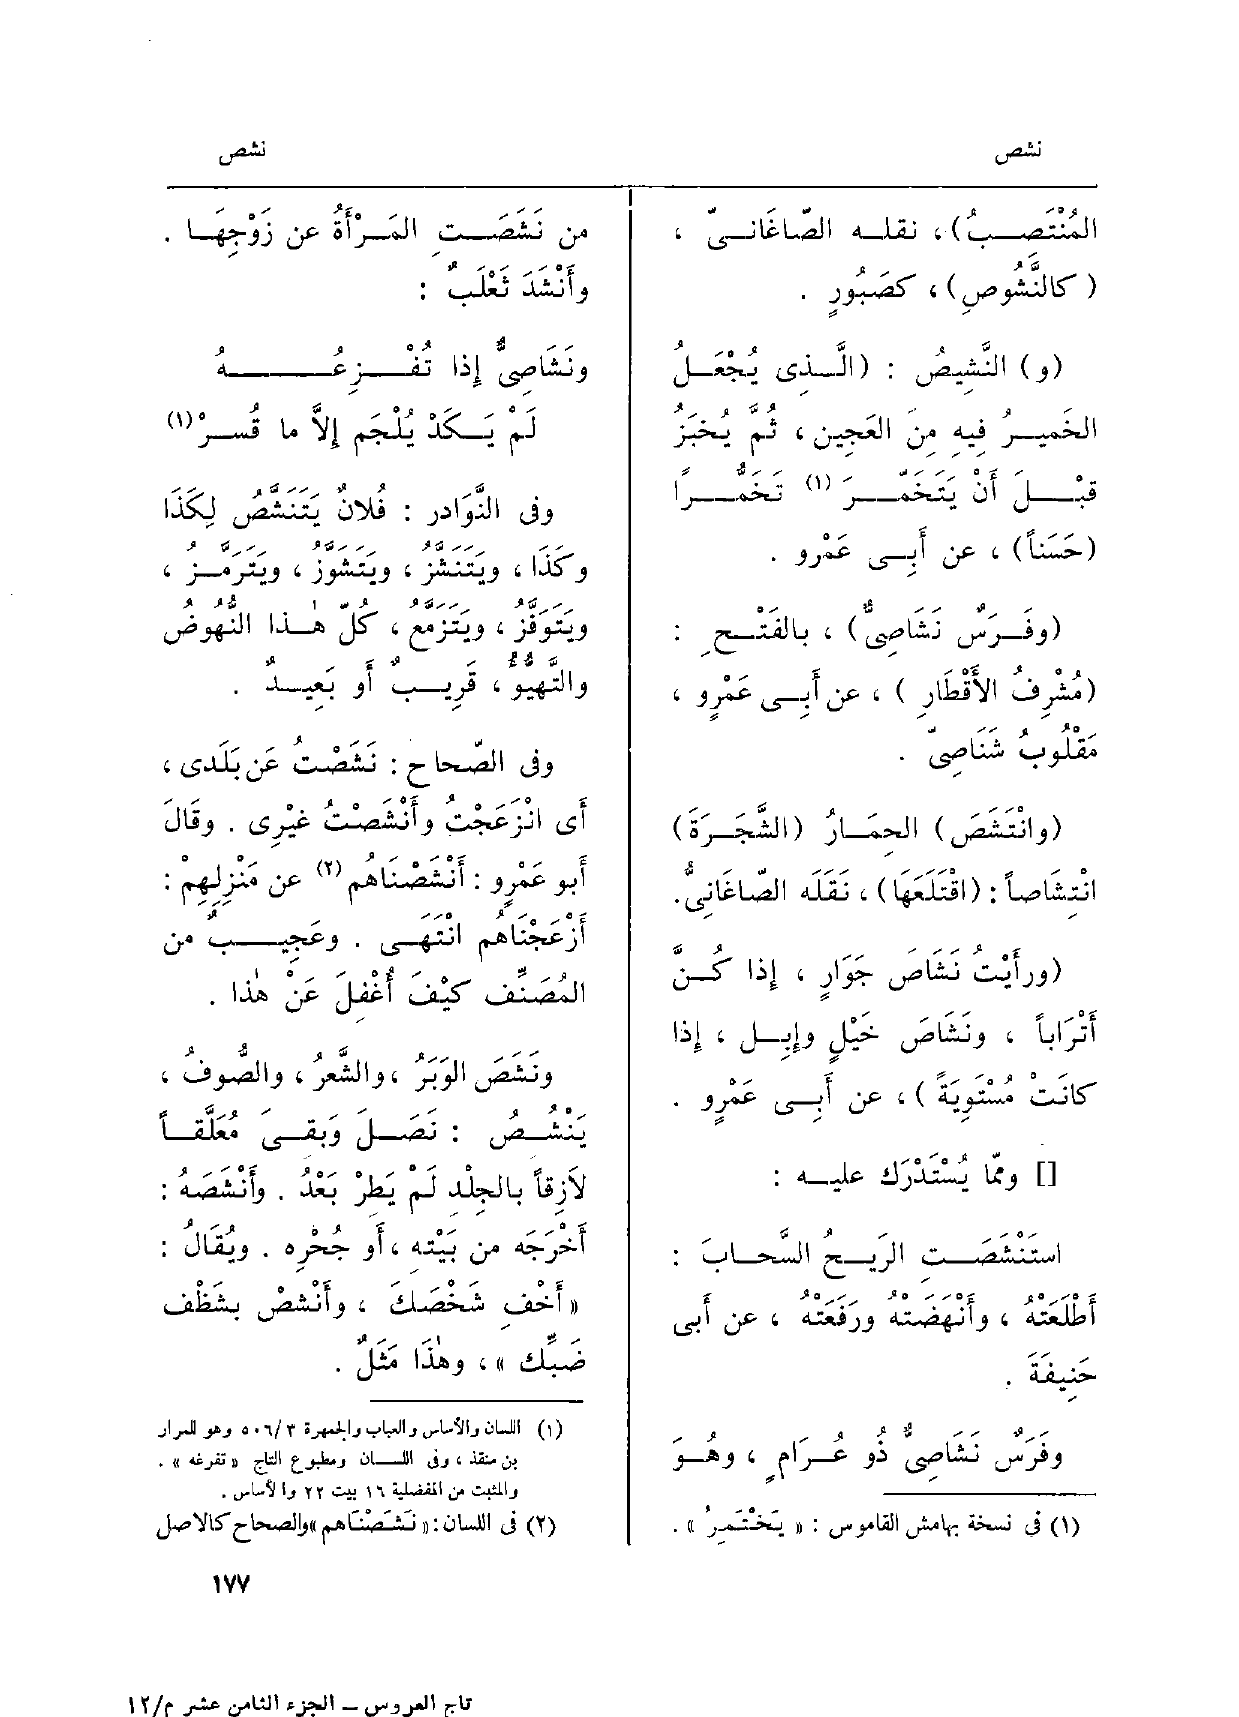 نشص
نشص
المُنْتَصِبُ)، نقله الصّاغَانِىّ ،
(كالنَّشُوصِ) ، كصَبُورٍ .
(و) النَّشِيصُ : (الَّذِى يُجْعَلُ
الخَمِيرُ فِيهِ مِنَ العَجِينِ ، ثُمَّ يُخْبَزُ
قَبْلَ أَنْ يَتَخَمَّرَ (١) تَخَمُّرًا
(حَسَناً) ، عن أَبِى عَمْرٍو .
(وفَرَسٌ نَشَاصِىٌّ) ، بالفَتْحِ :
(مُشْرِفُ الأَقْطَارِ ) ، عن أَبِى عَمْرٍو ،
مَقْلُوبُ شَنَاصِىّ .
(وانْتَشَصَ) الحِمَارُ (الشَّجَرَةَ)
انْتِشَاصاً : (اقْتَلَعَهَا) ، نَقَلَه الصّاغَانِىُّ.
(ورأَيْتُ نَشَاصَ جَوَارٍ ، إِذا كُنَّ
أَتْرَاباً ، ونَشَاصَ خَيْلٍ وإِبِلٍ ، إِذا
كانَتْ مُسْتَوِيَةً ) ، عن أَبِى عَمْرٍو .
[] وممّا يُسْتَدْرَك عليه :
استَنْشَصَت الرِّيحُ السَّحابَ :
أَطْلَعَتْهُ ، وأَنْهَضَتْهُ ورَفَعَتْهُ ، عن أَبى
حَنِيفَةَ .
وفَرَسٌ نَشَاصِىٌّ ذُو عُرَامٍ ، وهُوَ
(١) فى نسخة بهامش القاموس : « يَخْتَمِرُ » .
من نَشَصَتِ المَرْأَةُ عن زَوْجِهَا .
وأَنْشَدَ ثَعْلَبٌ :
ونَشَاصِىٌّ إِذا تُفْزِعُهُ
لَمْ يَكَدْ يُلْجَم إِلاَّ ما قُسِرْ (١)
وفى النَّوَادر : فُلانٌ يَتَنَشَّصُ لِكَذَا
وكَذَا ، ويَتَنَشَّزُ ، ويَتَشَوَّزُ ، ويَتَرَمَّزُ ،
ويَتَوَفَّزُ ، ويَتَزَمَّعُ ، كُلّ هٰذا النُّهُوضُ
والتَّهَيُّؤُ ، قَرِيبٌ أَو بَعِيدٌ .
وفى الصّحاح : نَشَصْتُ عَن بَلَدِى ،
أَى انْزَعَجْتُ وأَنْشَصْتُ غَيْرِى . وقَالَ
أَبو عَمْرٍو : أَنْشَصْنَاهُم (٢) عن مَنْزِلِهِمْ :
أَزْعَجْنَاهُم انْتَهَى . وعَجِيبٌ من
المُصَنِّف كَيْفَ أَغْفَلَ عَنْ هٰذا .
ونَشَصَ الوَبَرُ ، والشَّعرُ ، والصُّوفُ ،
يَنْشُصُ : نَصَلَ وَبَقِىَ مُعَلَّقاً
لاَزِقاً بالجِلْدِ لَمْ يَطِرْ بَعْدُ . وأَنْشَصَهُ :
أَخْرَجَه من بَيْتِه ، أَو جُحْرِه . ويُقَالُ :
« أَخْفِ شَخْصَكَ ، وأَنْشِصْ بشَظْفِ
ضَبِّك » ، وهٰذَا مَثَلٌ .
(١) اللسان والأساس والعباب والجمهرة ٣/ ٥٠٦ وهو للمرار
بن منقذ ، وفى اللسان ومطبوع التاج «تفرغه » .
والمثبت من المفضلية ١٦ بيت ٢٢ والأساس .
(٢) فى اللسان : « نَشَصْنَاهم » والصحاح كالاصل
١٧٧
تاج العروس – الجزء الثامن عشر م/١٢